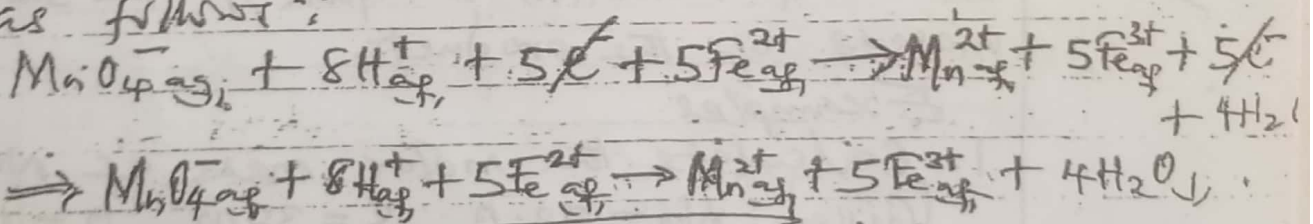 as follows:
MnO₄⁻(aq) + 8H⁺(aq) + 5e⁻ + 5Fe²⁺(aq) → Mn²⁺(aq) + 5Fe³⁺(aq) + 5e⁻
+ 4H₂
⇒ MnO₄⁻(aq) + 8H⁺(aq) + 5Fe²⁺(aq) → Mn²⁺(aq) + 5Fe³⁺(aq) + 4H₂O(l).